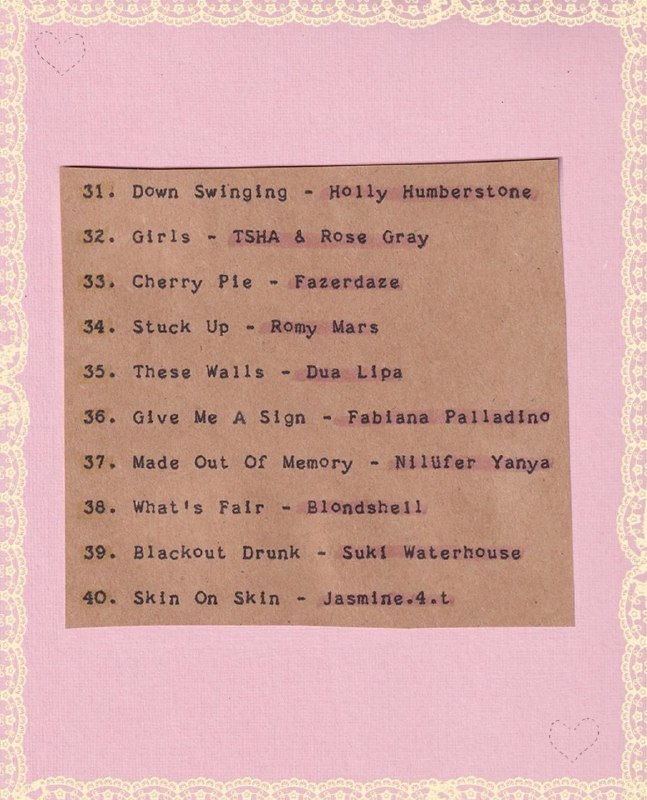 31. Down Swinging - Holly Humberstone
32. Girls - TSHA & Rose Gray
33. Cherry Pie - Fazerdaze
34. Stuck Up - Romy Mars
35. These Walls - Dua Lipa
36. Give Me A Sign - Fabiana Palladino
37. Made Out Of Memory - Nilüfer Yanya
38. What's Fair - Blondshell
39. Blackout Drunk - Suki Waterhouse
40. Skin On Skin - Jasmine.4.t